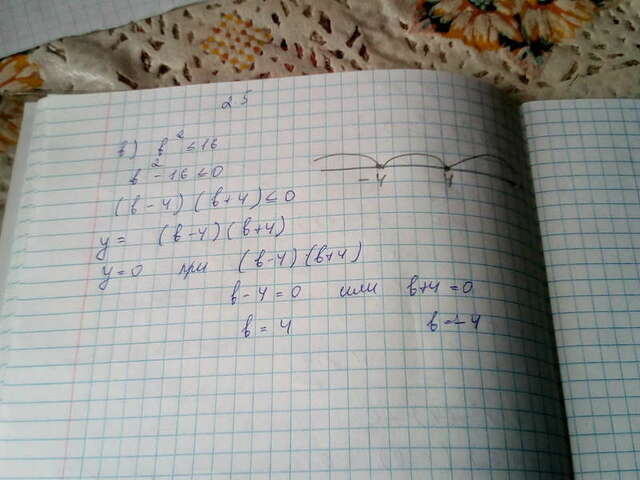 25
в) в² ≤ 16
в² - 16 ≤ 0
(в-4) (в+4) ≤ 0
y = (в-4) (в+4)
y=0 при (в-4) (в+4)
в-4=0 или в+4=0
в = 4 в=-4
-4 4